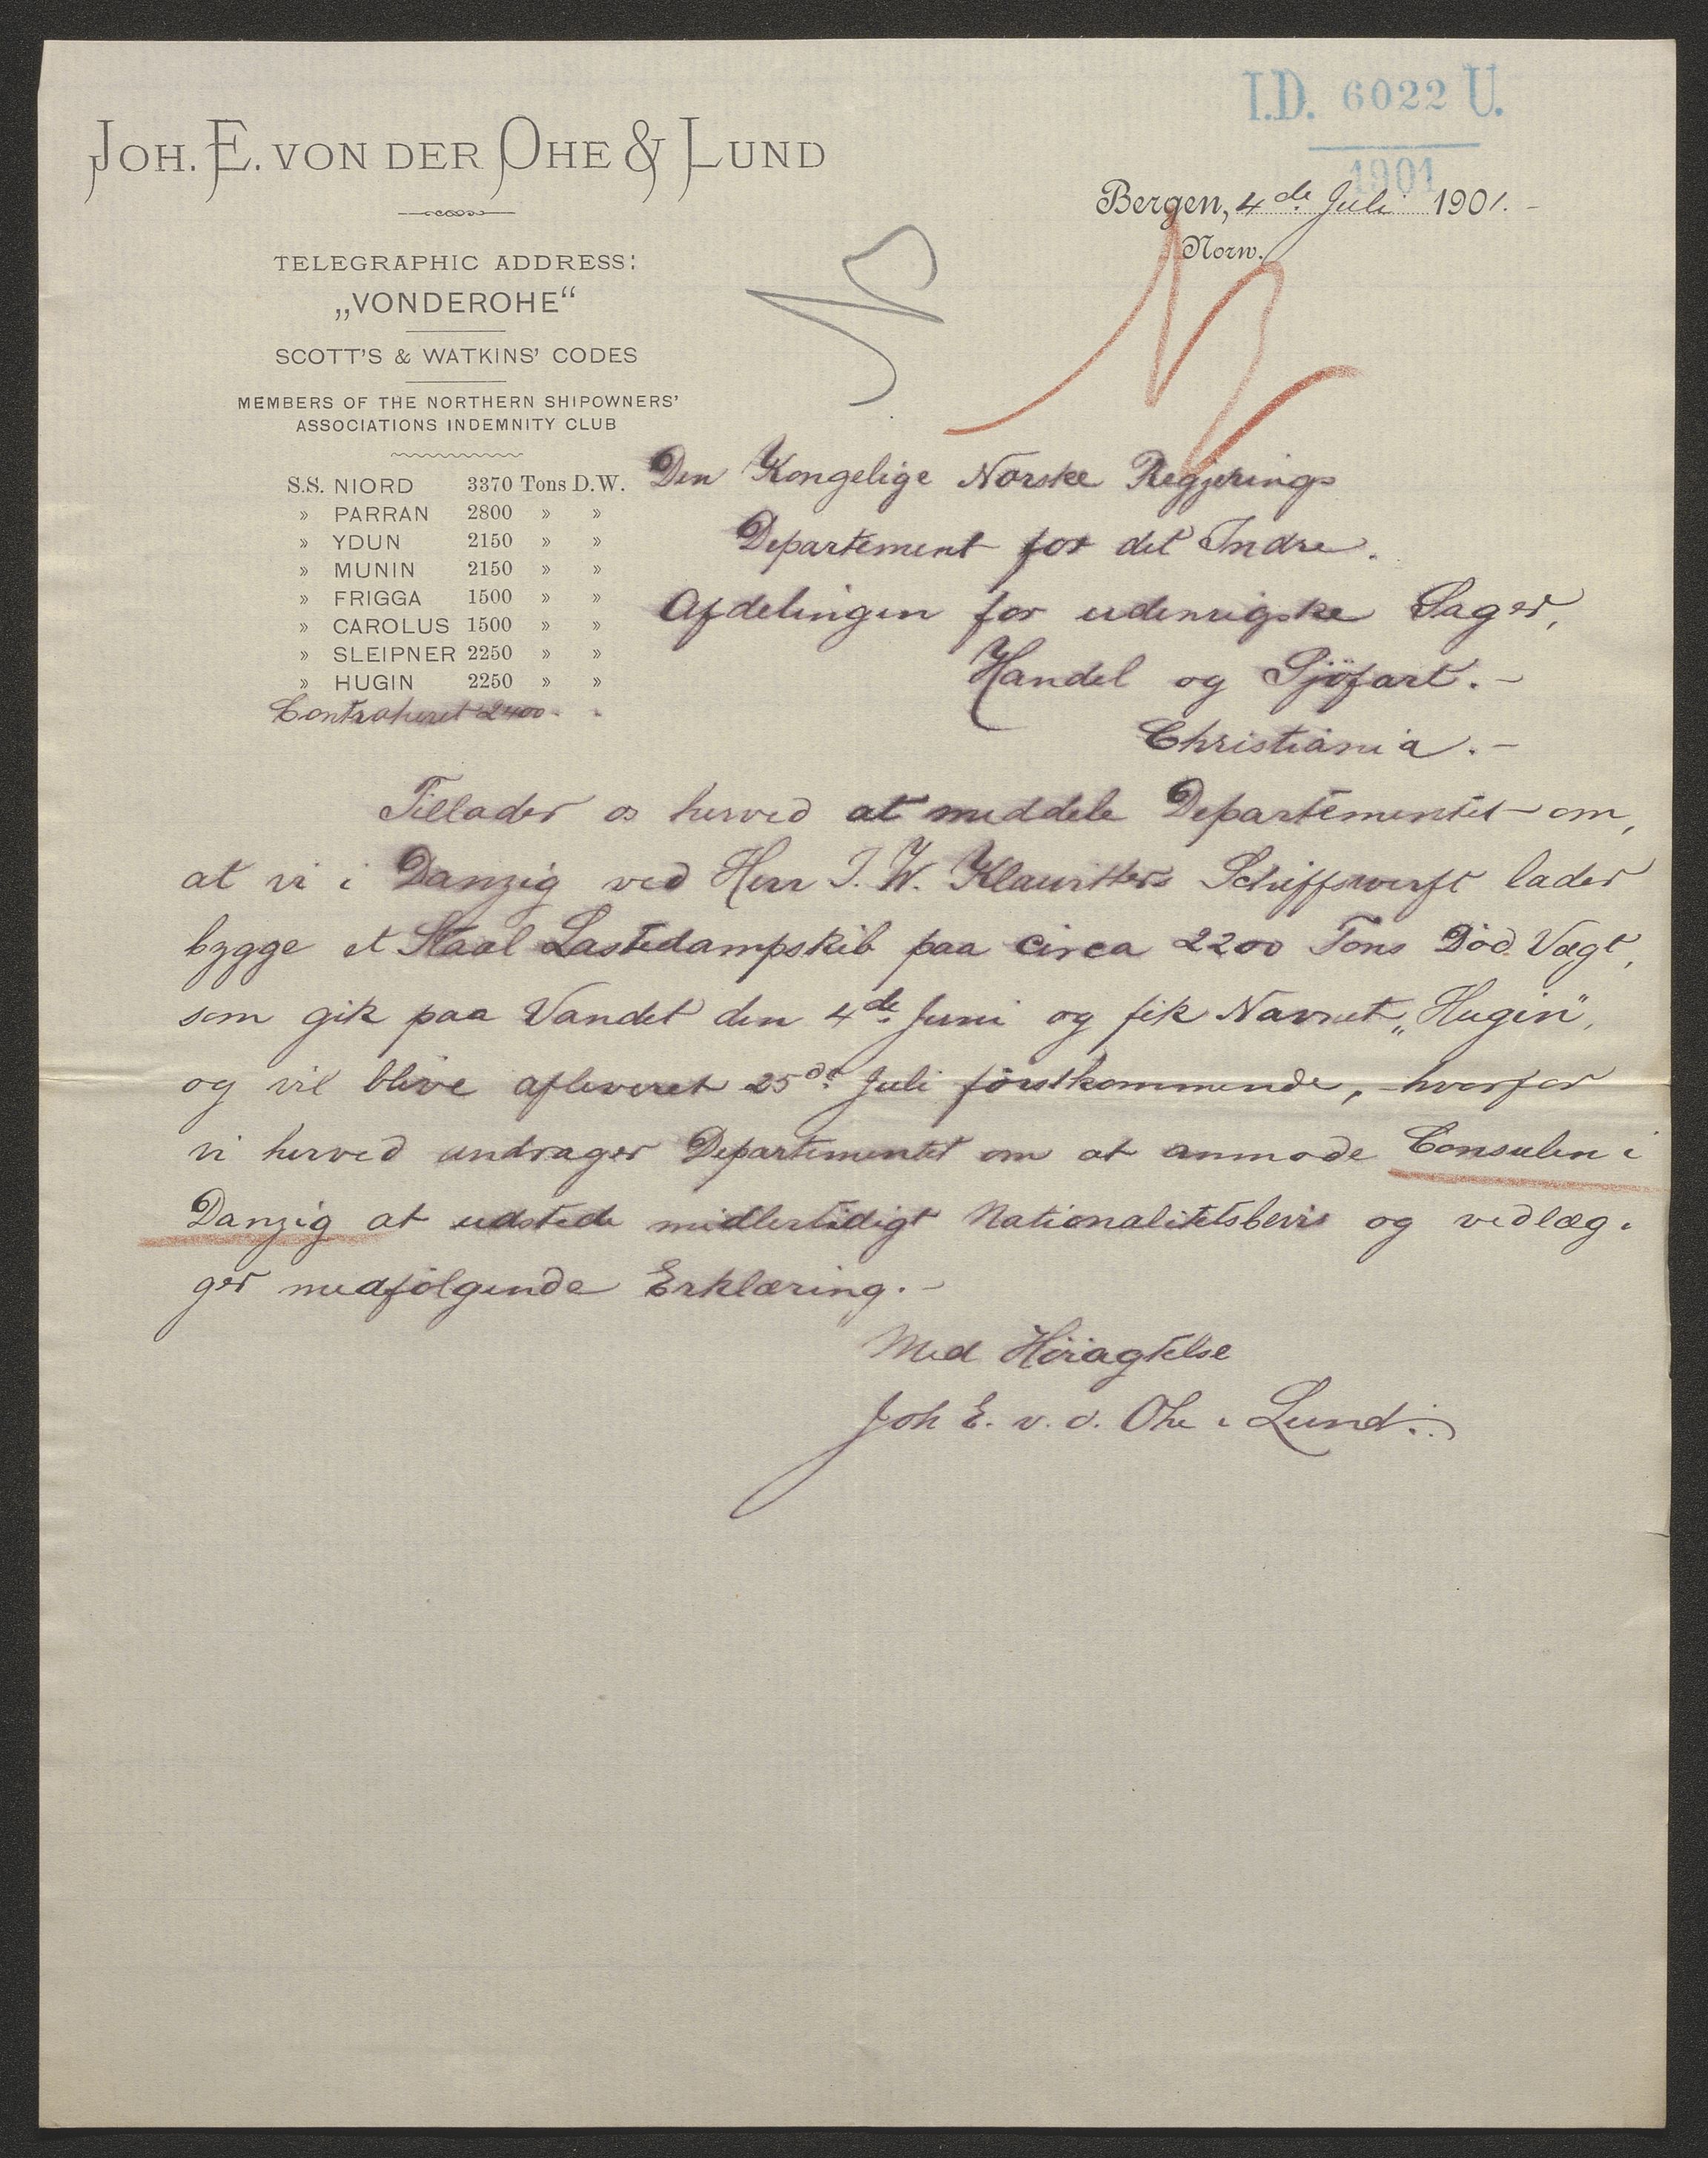 I.D. 6022 U.
1901
JOH. E. VON DER OHE & LUND
Bergen, 4de Juli 1901.-
Norw.
TELEGRAPHIC ADDRESS:
„VONDEROHE“
SCOTT'S & WATKINS' CODES
MEMBERS OF THE NORTHERN SHIPOWNERS'
ASSOCIATIONS INDEMNITY CLUB
S.S. NIORD 3370 Tons D.W.
» PARRAN 2800 » »
» YDUN 2150 » »
» MUNIN 2150 » »
» FRIGGA 1500 » »
» CAROLUS 1500 » »
» SLEIPNER 2250 » »
» HUGIN 2250 » »
Contraheret 2400 - -
Den Kongelige Norske Regjerings
Departement for det Indre.
Afdelingen for udenrigske Sager,
Handel og Sjöfart.-
Christiania.-
Tillader os herved at meddele Departementet om,
at vi i Danzig ved Herr J. W. Klawitters Schiffswerft lader
bygge et Staal Lastedampskib paa circa 2200 Tons Död Vægt,
som gik paa Vandet den 4de Juni og fik Navnet „Hugin“,
og vil blive afleveret 25de Juli förstkommende, hvorfor
vi herved andrager Departementet om at anmode Consulen i
Danzig at udstede midlertidigt Nationalitetsbevis og vedlæg-
ger medfölgende Erklæring.-
Med Höiagtelse
Joh E. v. d. Ohe & Lund.